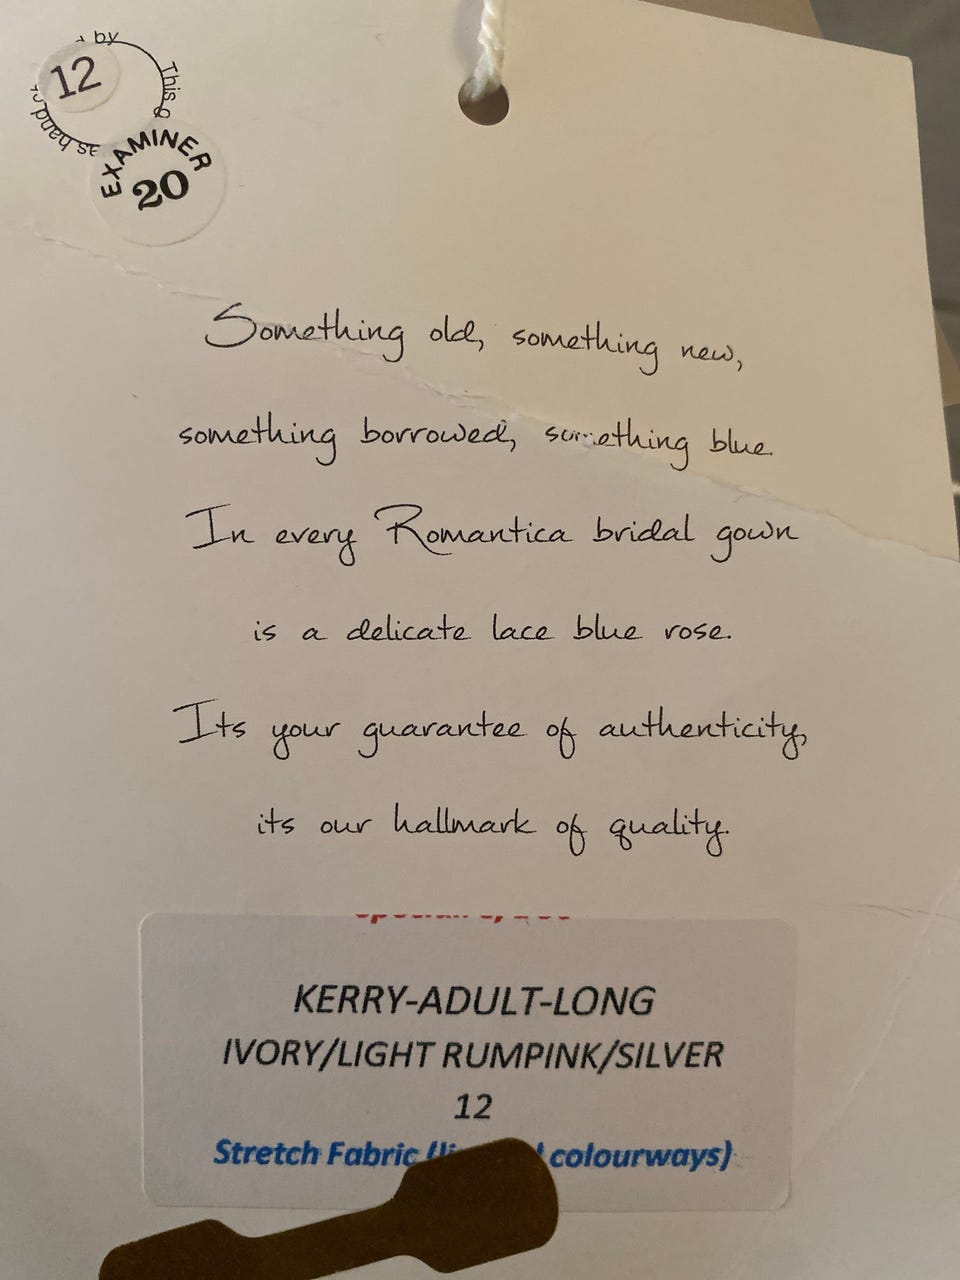 by
12
This
hand
as
EXAMINER
20
Something old, something new,
something borrowed, something blue.
In every Romantica bridal gown
is a delicate lace blue rose.
Its your guarantee of authenticity,
its our hallmark of quality.
KERRY-ADULT-LONG
IVORY/LIGHT RUMPINK/SILVER
12
Stretch Fabric colourways)